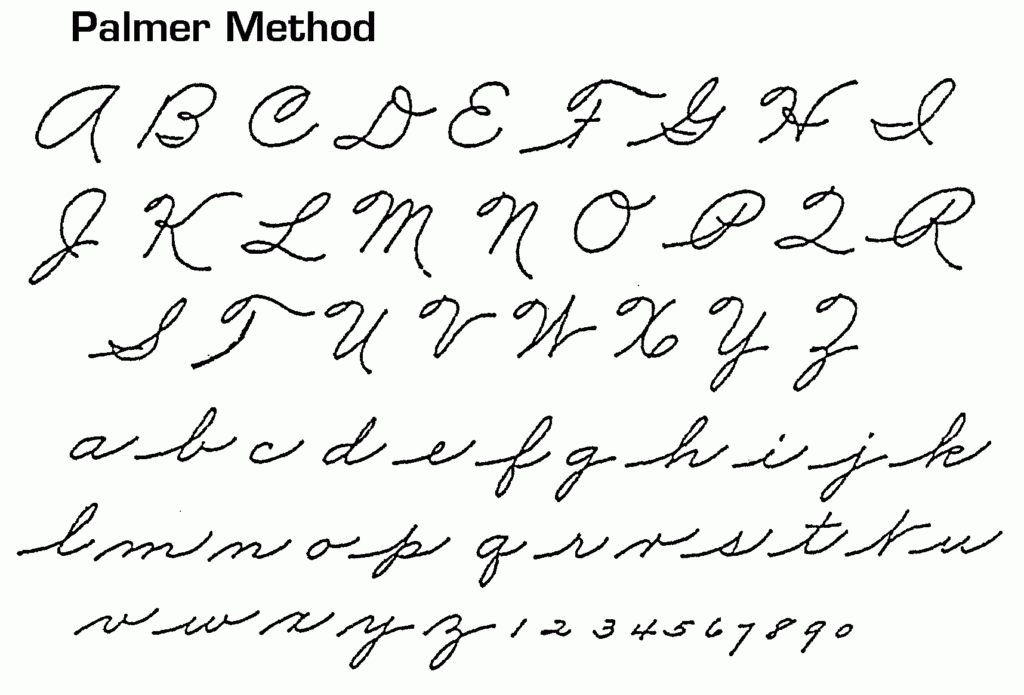 Palmer Method
A B C D E F G H I
J K L M N O P Q R
S T U V W X Y Z
a b c d e f g h i j k
l m n o p q r r s t t u
v w x y z 1 2 3 4 5 6 7 8 9 0